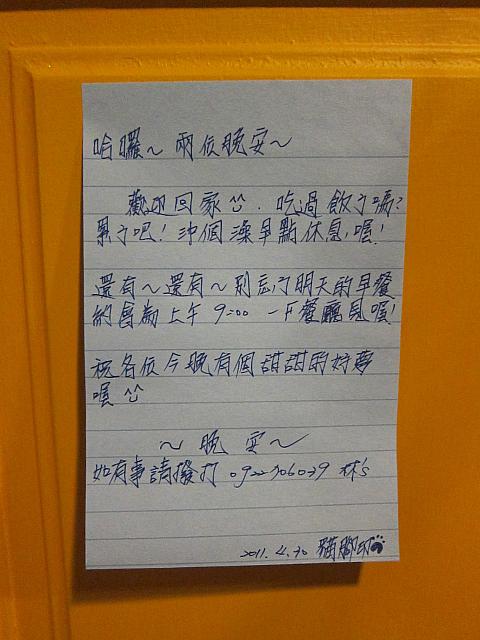 哈囉～ 兩位晚安～
歡迎回家^^. 吃過飯了嗎?
累了吧! 沖個澡早點休息,喔!
還有～還有～別忘了明天的早餐
約會為上午 9:00 一F餐廳見喔!
祝各位今晚有個甜甜的好夢
喔 ^^
～ 晚 安～
如有事請撥打 0922706039 林's
2011.4.30 貓腳印